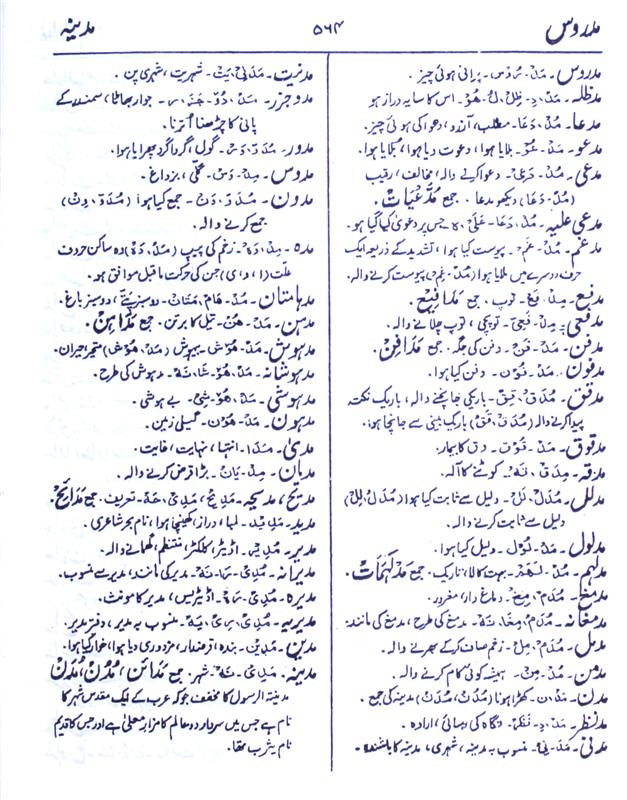 مدروس
۵۶۴
مدینہ
مدروس۔ مَدْ۔رُوْس۔ پرانی ہوئی چیز۔
مدظلہ۔ مَدْ۔دَ۔ظِلْ۔لُ۔ہُوْ۔ اس کا سایہ دراز ہو
مدعا۔ مُدْ۔دَعَا۔ مطلب، آرزو، دعویٰ کی ہوئی چیز۔
مدعو۔ مَدْ۔عُوْ۔ بلایا ہوا، دعوت دیا ہوا، بُلایا ہوا۔
مدعی۔ مُدْ۔دَعِیْ۔ دعویٰ کرنے والا، مخالف، رقیب
(مُدْ۔دَعَا) دیکھو مدعا۔ جمع مُدَّعِیَات۔
مدعیٰ علیہ۔ مُدْ۔دَعَا۔عَلَیْ۔ہ جس پر دعویٰ کیا گیا ہو۔
مدغم۔ مُدْ۔غَمْ۔ پیوست کیا ہوا، تشدید کے ذریعہ ایک
حرف دوسرے میں ملایا ہوا (مُدْ۔غِمْ) پیوست کرنے والا۔
مدفع۔ مِدْ۔فَعْ۔ توپ۔ جمع مَدَافِع۔
مدفعی۔ مِدْ۔فَعِیْ۔ توپچی، توپ چلانے والا۔
مدفن۔ مَدْ۔فَنْ۔ دفن کی جگہ۔ جمع مَدَافِنْ۔
مدفون۔ مَدْ۔فُوْن۔ دفن کیا ہوا۔
مدقق۔ مُدَقْ۔قِقْ۔ باریکی جانچنے والا، باریک نکتہ
پیدا کرنے والا (مُدَقْ۔قَقْ) باریک بینی سے جانچا ہوا۔
مدقوق۔ مَدْ۔قُوْق۔ دق کا بیمار۔
مدقہ۔ مِدَقْ۔قَہْ۔ کوٹنے کا آلہ۔
مدلل۔ مُدَلْ۔لَلْ۔ دلیل سے ثابت کیا ہوا (مُدَلْ۔لِلْ)
دلیل سے ثابت کرنے والا۔
مدلول۔ مَدْ۔لُوْل۔ دلیل کیا ہوا۔
مدلہم۔ مُدْ۔لَہَمْ۔ بہت کالا، تاریک۔ جمع مُدْلَہَمَّات۔
مدمغ۔ مُدَمْ۔مِغْ۔ دماغ دار، مغرور۔
مدمغانہ۔ مُدَمْ۔مِغَا۔نَہْ۔ مدمغ کی طرح، مدمغ کی مانند۔
مدمل۔ مُدَمْ۔مِلْ۔ زخم صاف کر کے بھرنے والا۔
مدمن۔ مُدْ۔مِنْ۔ ہمیشہ کوئی کام کرنے والا۔
مدن۔ مَدْ۔ن۔ کھڑا ہونا (مُدُنْ، مُدْنْ) مدینہ کی جمع۔
مدنظر۔ مَدْ۔دِ۔نَظَرْ۔ نگاہ کی رسائی، ارادہ۔
مدنی۔ مَدَ۔نِیْ۔ منسوب بہ مدینہ، شہری، مدینہ کا باشندہ۔
مدنیت۔ مَدَنِیْ۔یَتْ۔ شہریت، شہری پن۔
مدوجزر۔ مَدْ۔دُوْ۔جَزَ۔ر۔ جوار بھاٹا، سمندر کے
پانی کا چڑھنا اُترنا۔
مدور۔ مُدَوْ۔وَرْ۔ گول، گرداگرد پھرایا ہوا۔
مدوس۔ مِدْ۔وَسْ۔
مدون۔ مُدَوْ۔وَنْ۔ جمع کیا ہوا (مُدَوْ۔وِنْ)
جمع کرنے والا۔
مدہ۔ مِدْ۔دَہْ۔ زخم کی پیپ (مَدْ۔دَہْ) وہ ساکن حروف
علت (ا، و، ی) جن کی حرکت ماقبل موافق ہو۔
مدہامتان۔ مُدْ۔ھَامْ۔مَتَانْ۔ دو سبز پتے، دو سبز باغ۔
مدہن۔ مُدْ۔ھُنْ۔ تیل کا برتن۔ جمع مَدَاہِن۔
مدہوش۔ مَدْ۔ھُوْش۔ بیہوش (مَدْ۔ھُوْش) متحیر، حیران۔
مدہوشانہ۔ مَدْ۔ھُوْ۔شَا۔نَہْ۔ مدہوش کی طرح۔
مدہوشی۔ مَدْ۔ھُوْ۔شِیْ۔ بے ہوشی۔
مدہون۔ مَدْ۔ھُوْن۔ گیلی زمین۔
مدیٰ۔ مَدَا۔ انتہا، نہایت، غایت۔
مدیان۔ مِدْ۔یَان۔ بڑا قرض کرنے والا۔
مدیح، مدیحہ۔ مَدِیْحْ، مَدِیْ۔حَہْ۔ تعریف۔ جمع مَدَائِح۔
مدید۔ مَدِیْد۔ لمبا، دراز، کھینچا ہوا، نام بحر شاعری۔
مدیر۔ مُدِیْر۔ اڈیٹر، کلکٹر، منتظم، گھمانے والا۔
مدیرانہ۔ مُدِیْ۔رَا۔نَہْ۔ مدیر کی مانند، مدیر سے منسوب۔
مدیرہ۔ مُدِیْ۔رَہْ۔ اڈیٹریس، مدیر کا مونث۔
مدیریہ۔ مُدِیْ۔رِیْ۔یَہْ۔ منسوب بہ مدیر، دفتر مدیر۔
مدین۔ مَدِیْن۔ بندہ، قرضدار، مزدوری دیا ہوا، خوار کیا ہوا۔
مدینہ۔ مَدِیْ۔نَہْ۔ شہر۔ جمع مَدَائِن، مُدُنْ، مُدْنْ
مدینۃ الرسول کا مخفف جو کہ عرب کے ایک مقدس شہر کا
نام ہے جس میں سردار دو عالم کا مزار معلیٰ ہے اور جس کا قدیم
نام یثرب تھا۔